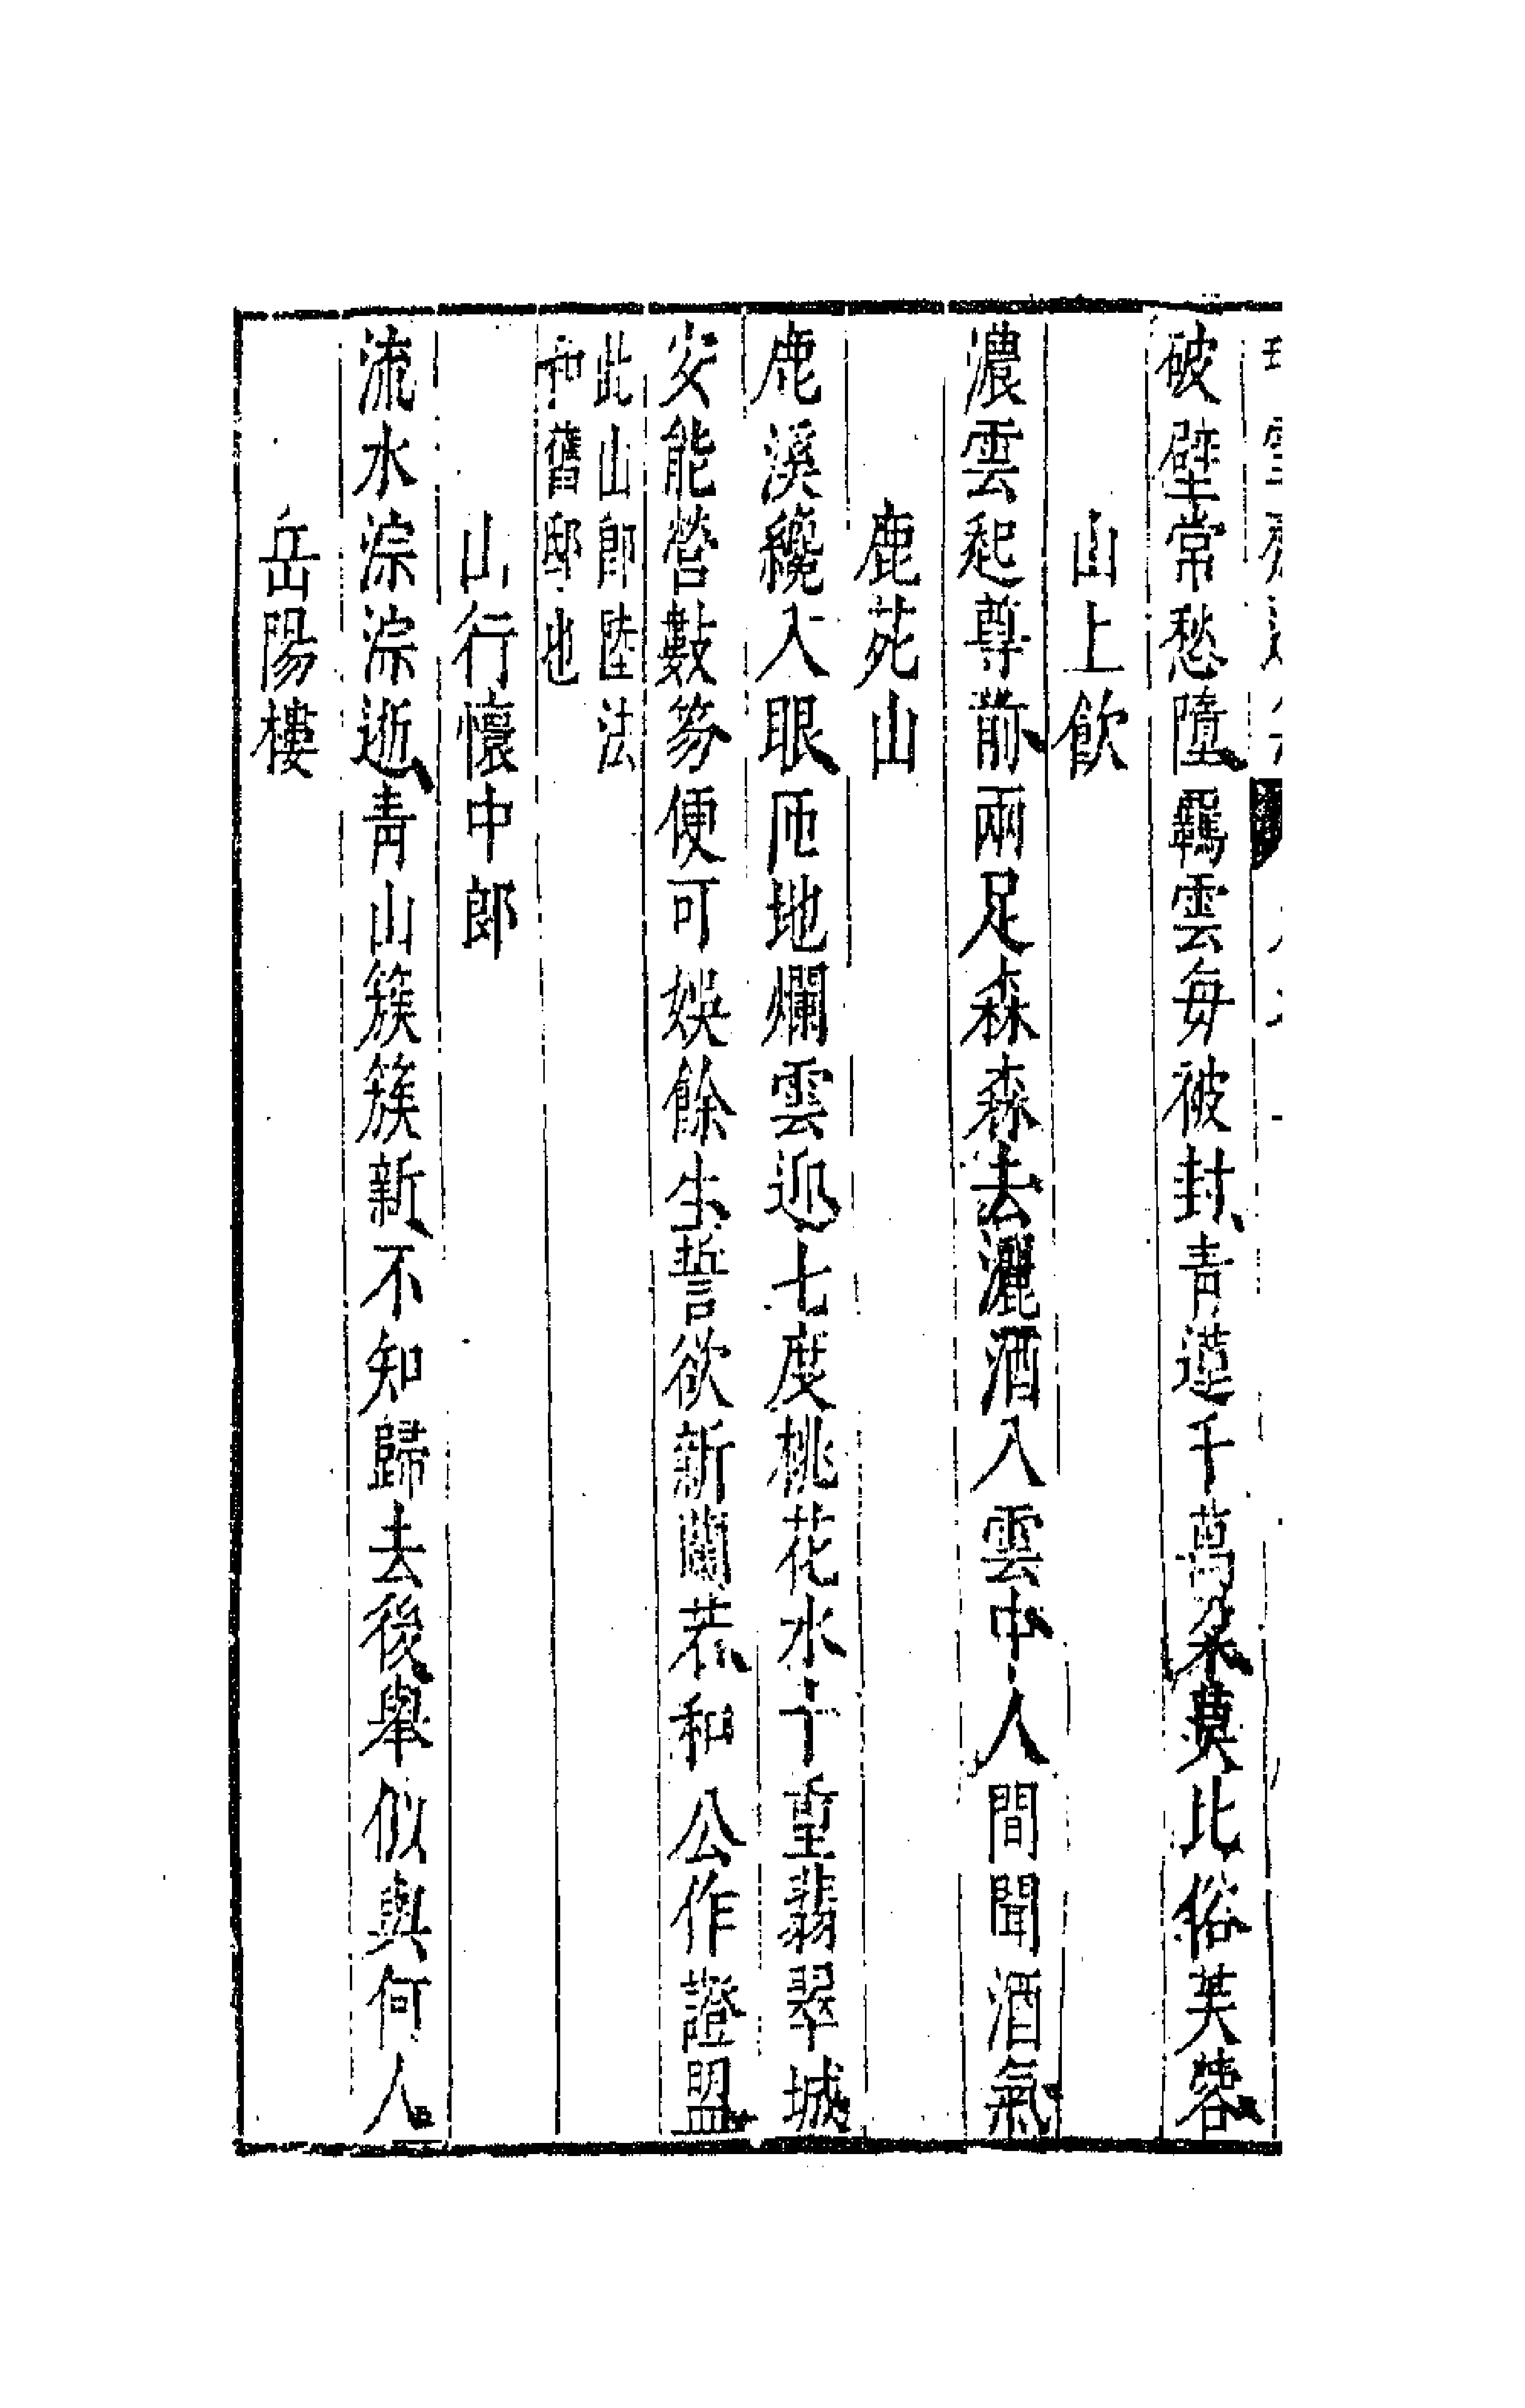 破壁常愁墮羈雲每被封青蓮千萬朵莫比俗芙蓉
山上飲
濃雲起尊前兩足森森去灑酒入雲中人間聞酒氣
鹿苑山
鹿溪纔入眼匝地爛雲迎七度桃花水千重翡翠城
安能營數笏便可娛餘生誓欲新蘭若和公作證盟
此山郎陸法
和舊邸也
山行懷中郎
流水淙淙逝青山簇簇新不知歸去後舉似與何人
岳陽樓